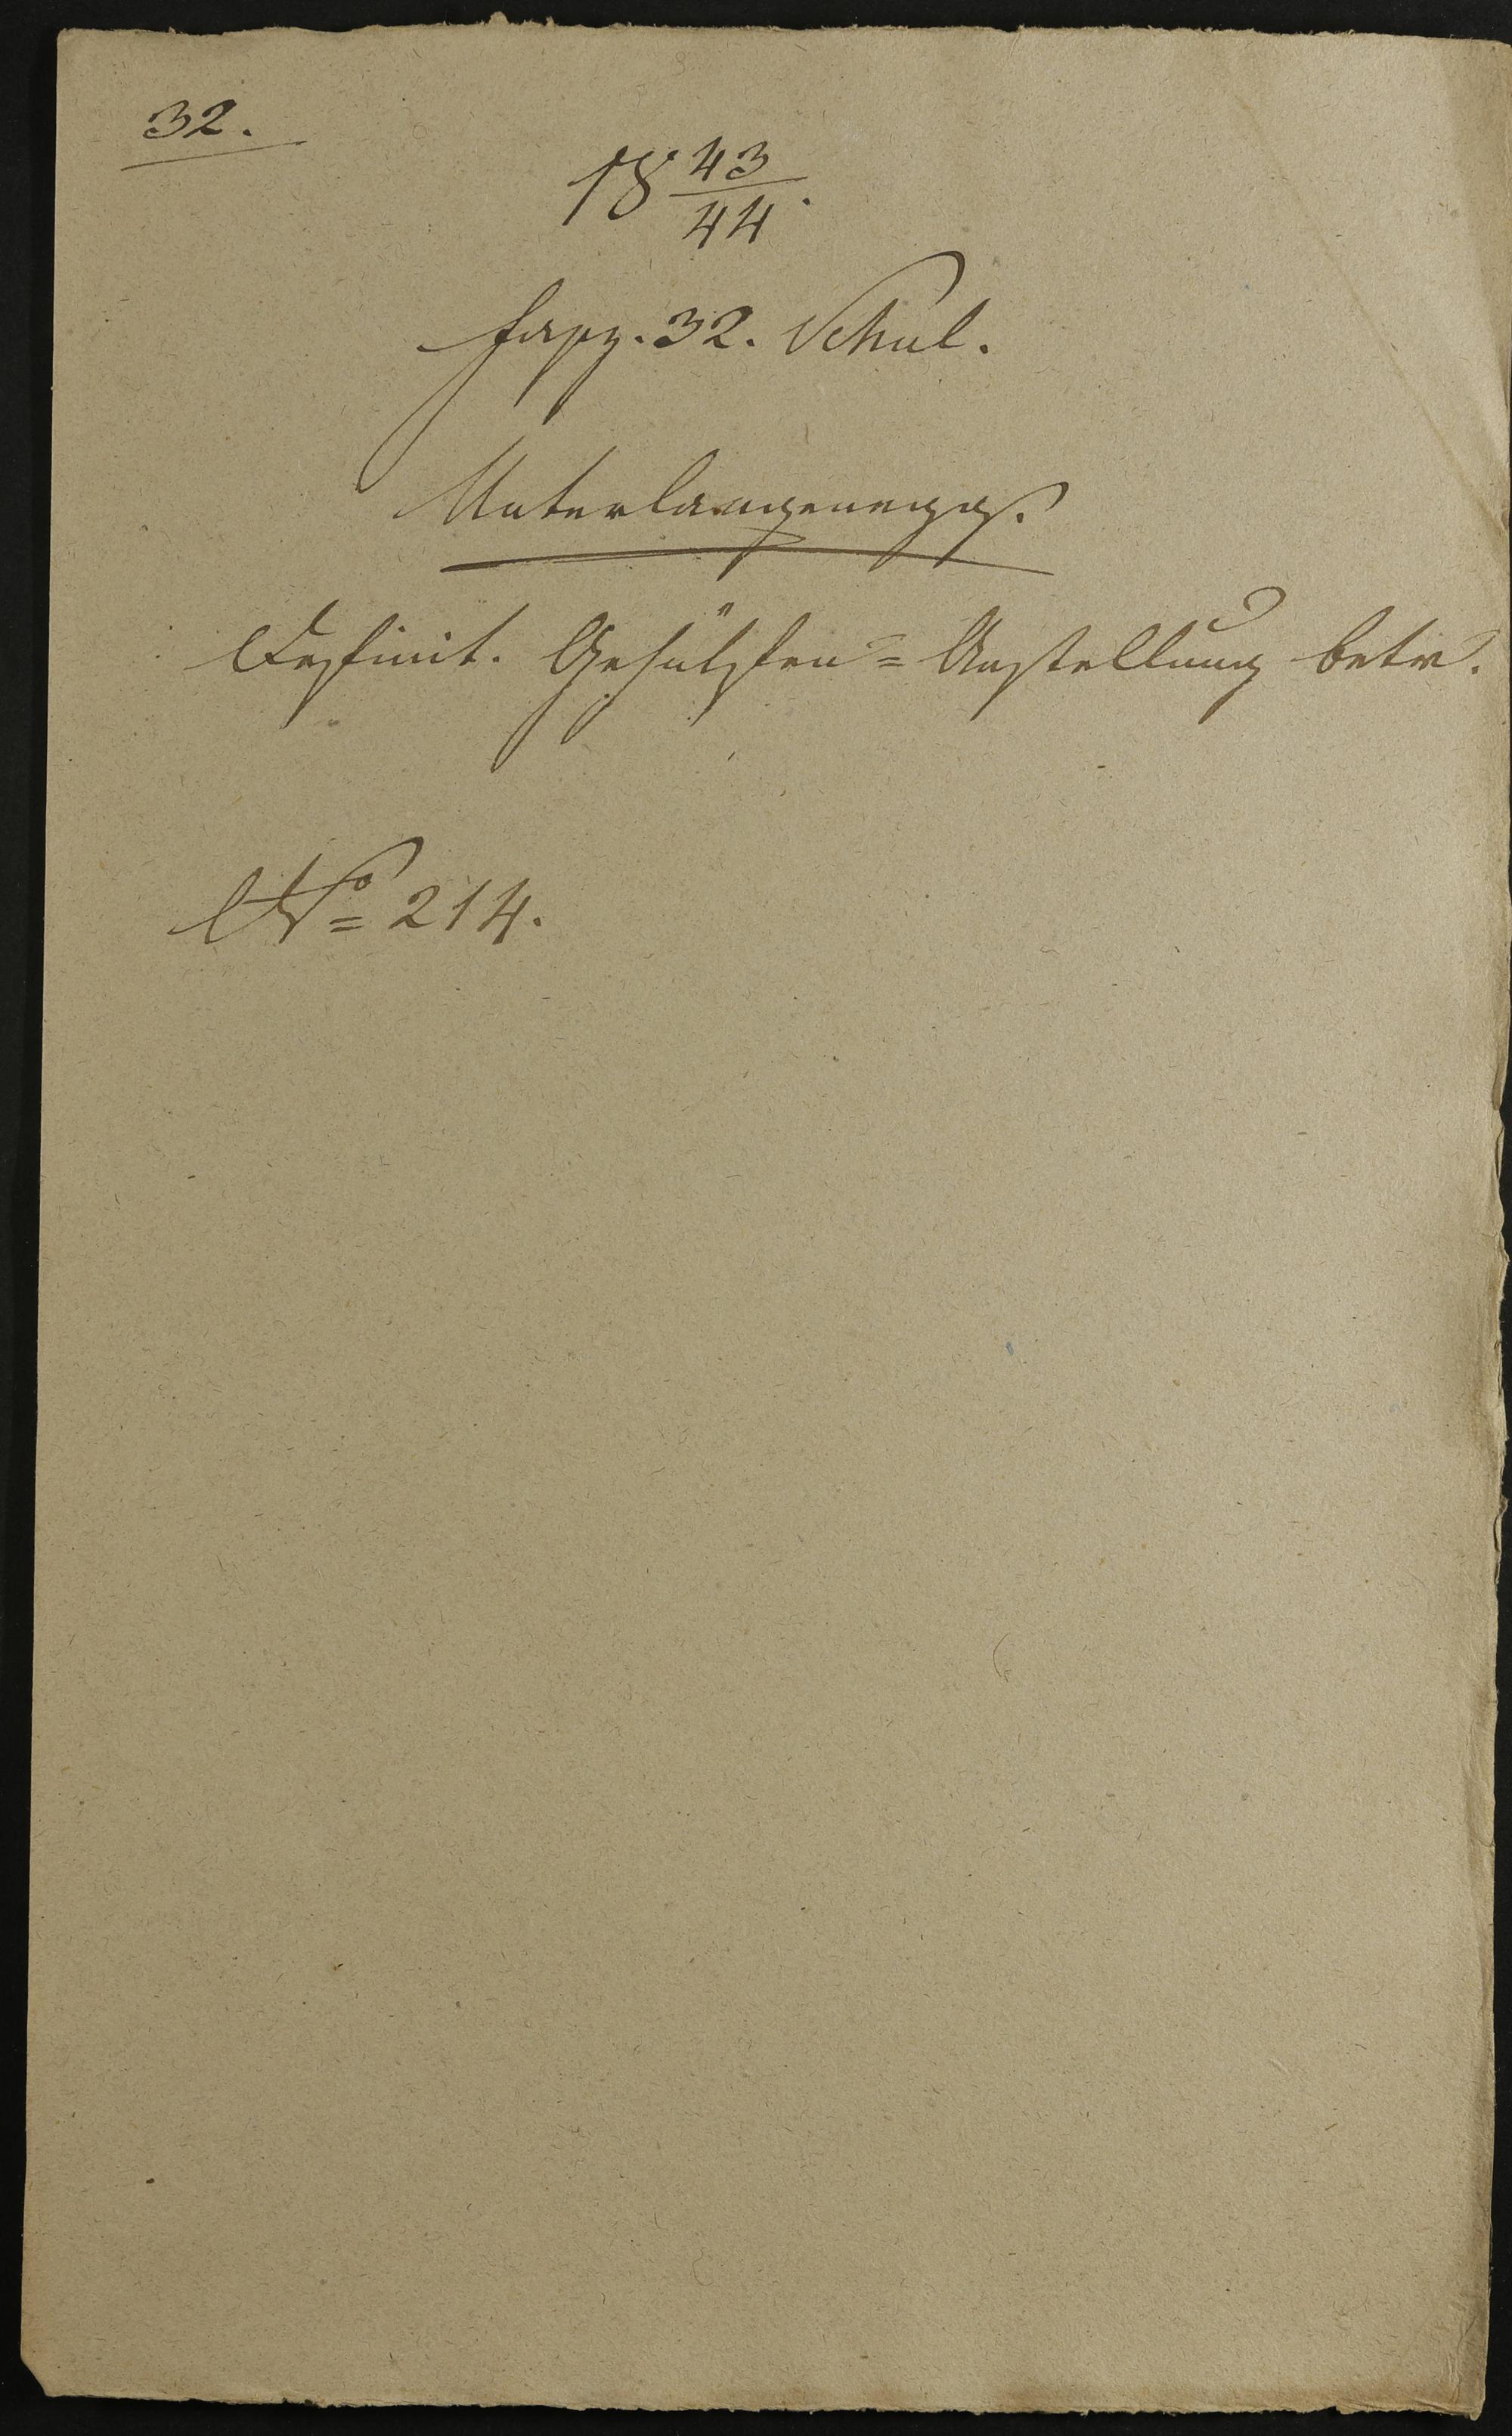 32.
18 43/44.
Fasz. 32. Schul.
Unterlangenegg.
Definit. Gehülfen=Anstellung betr.
No 214.